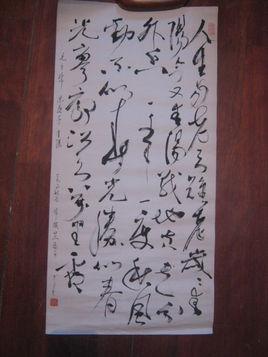 人生易老天難老歲々重
陽今又重陽战地黄花分
外香一年一度秋風
勁不似春光勝似春
光寥廓江天万里霜